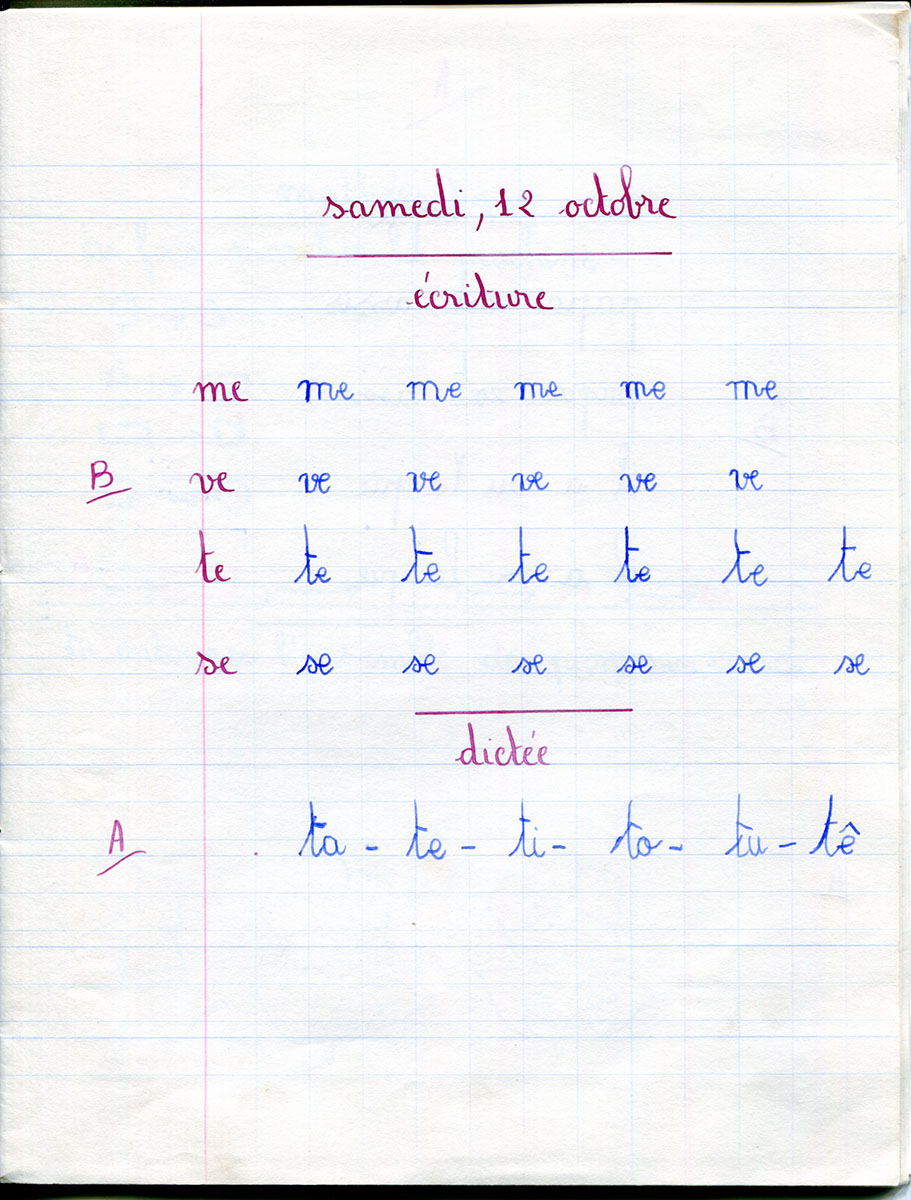 samedi, 12 octobre
écriture
me me me me me me
B ve ve ve ve ve ve
te te te te te te te
se se se se se se se
dictée
A . ta - te - ti - to - tu - tê